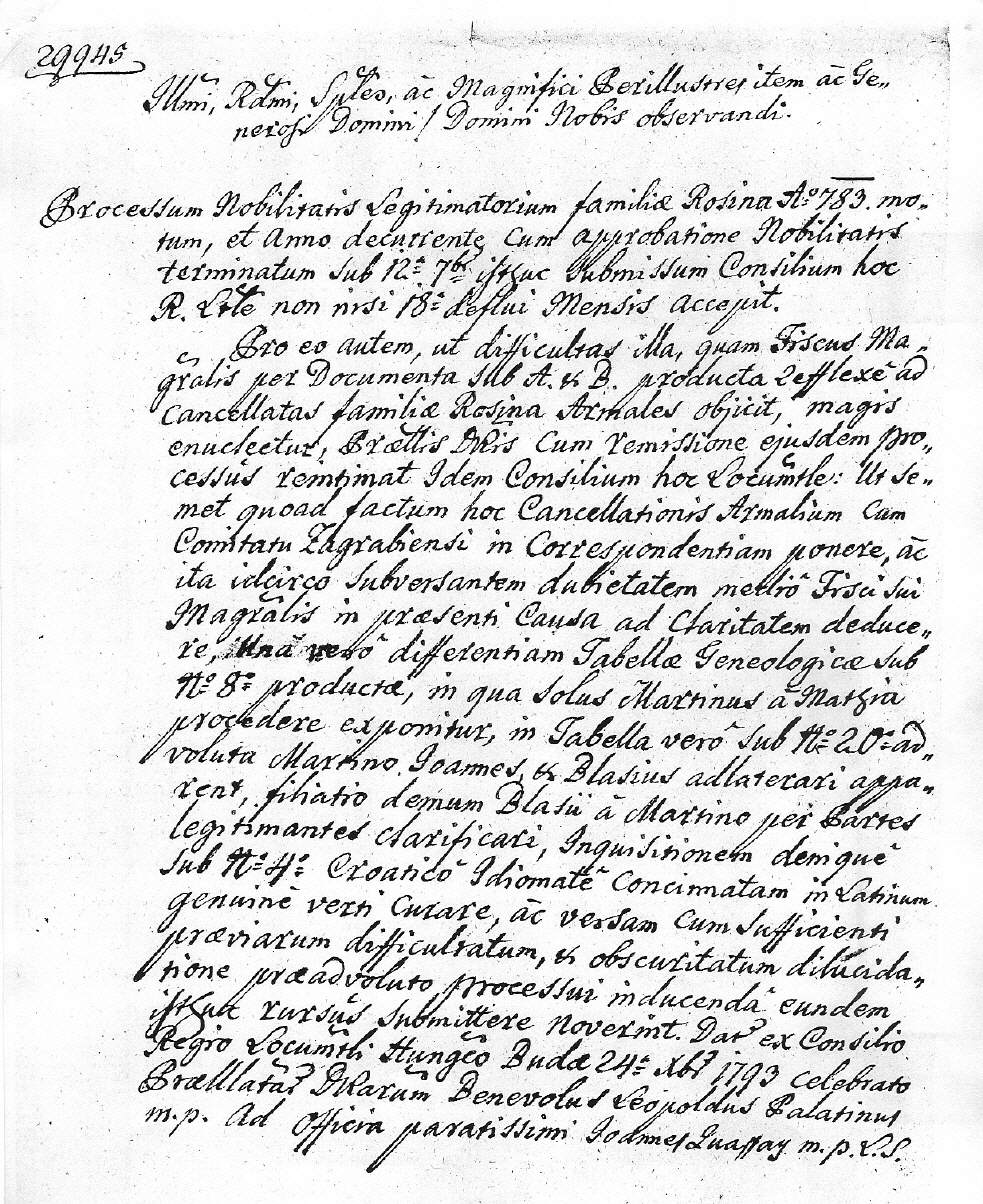 29945
Illmi, Rdmi, Sples, ac Magnifici Perillustres item ac Ge„
nerosi Domini! Domini Nobis observandi.
Processum Nobilitatis Legitimatorium familiæ Rosina Aº 783. mo„
tum, et Anno decurrente cum approbatione Nobilitatis
terminatum sub 12ª 7br isthuc submissum Consilium hoc
R. Lttle non nisi 18ª deflui Mensis accepit.
Pro eo autem, ut difficultas illa, quam Fiscus Ma„
gralis per Documenta sub A. & B. producta reflexè ad
Cancellatas familiæ Rosina Armales objicit, magis
enucleetur, Prættis DVris cum remissione ejusdem Pro„
cessûs reintimat Idem Consilium hoc Locumtle: Ut se„
met quoad factum hoc Cancellationis Armalium cum
Comitatu Zagrabiensi in Correspondentiam ponere, ac
ita idcirco subversantem dubietatem mediô Fisci sui
Magralis in præsenti Causa ad Claritatem deduce„
re, Unà verô differentiam Tabellæ Geneologicæ sub
Nº 8º productæ, in qua solus Martinus à Mathia
procedere exponitur, in Tabella verô sub Nº 20º ad„
voluta Martino Joannes, & Blasius adlaterari appa„
rent, filiatio demum Blasii à Martino per Partes
legitimantes clarificari, Inquisitionem deniquè
sub Nº 4º Croaticô Idiomatê concinnatam in Latinum
genuinè verti curare, ac versam cum sufficienti
præviarum difficultatum, & obscuritatum dilucida„
tione præadvoluto processui inducendâ eundem
isthuc rursùs submittere noverint. Dat ex Consilio
Regio Locumtli Hungco Budæ 24ª Xbr 1793 celebrato
Prællatar DVRarum Benevolus Leopoldus Palatinus
m.p. Ad officia paratissimi Joannes m.p. L.S.